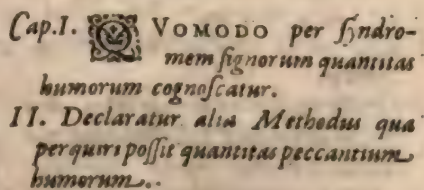 Cap.I. QVOMODO per ſyndro-
mem ſignorum quantitas
humorum cognoſcatur.
II. Declaratur alia Methodus qua
perquiri poſſit quantitas peccantium
humorum..